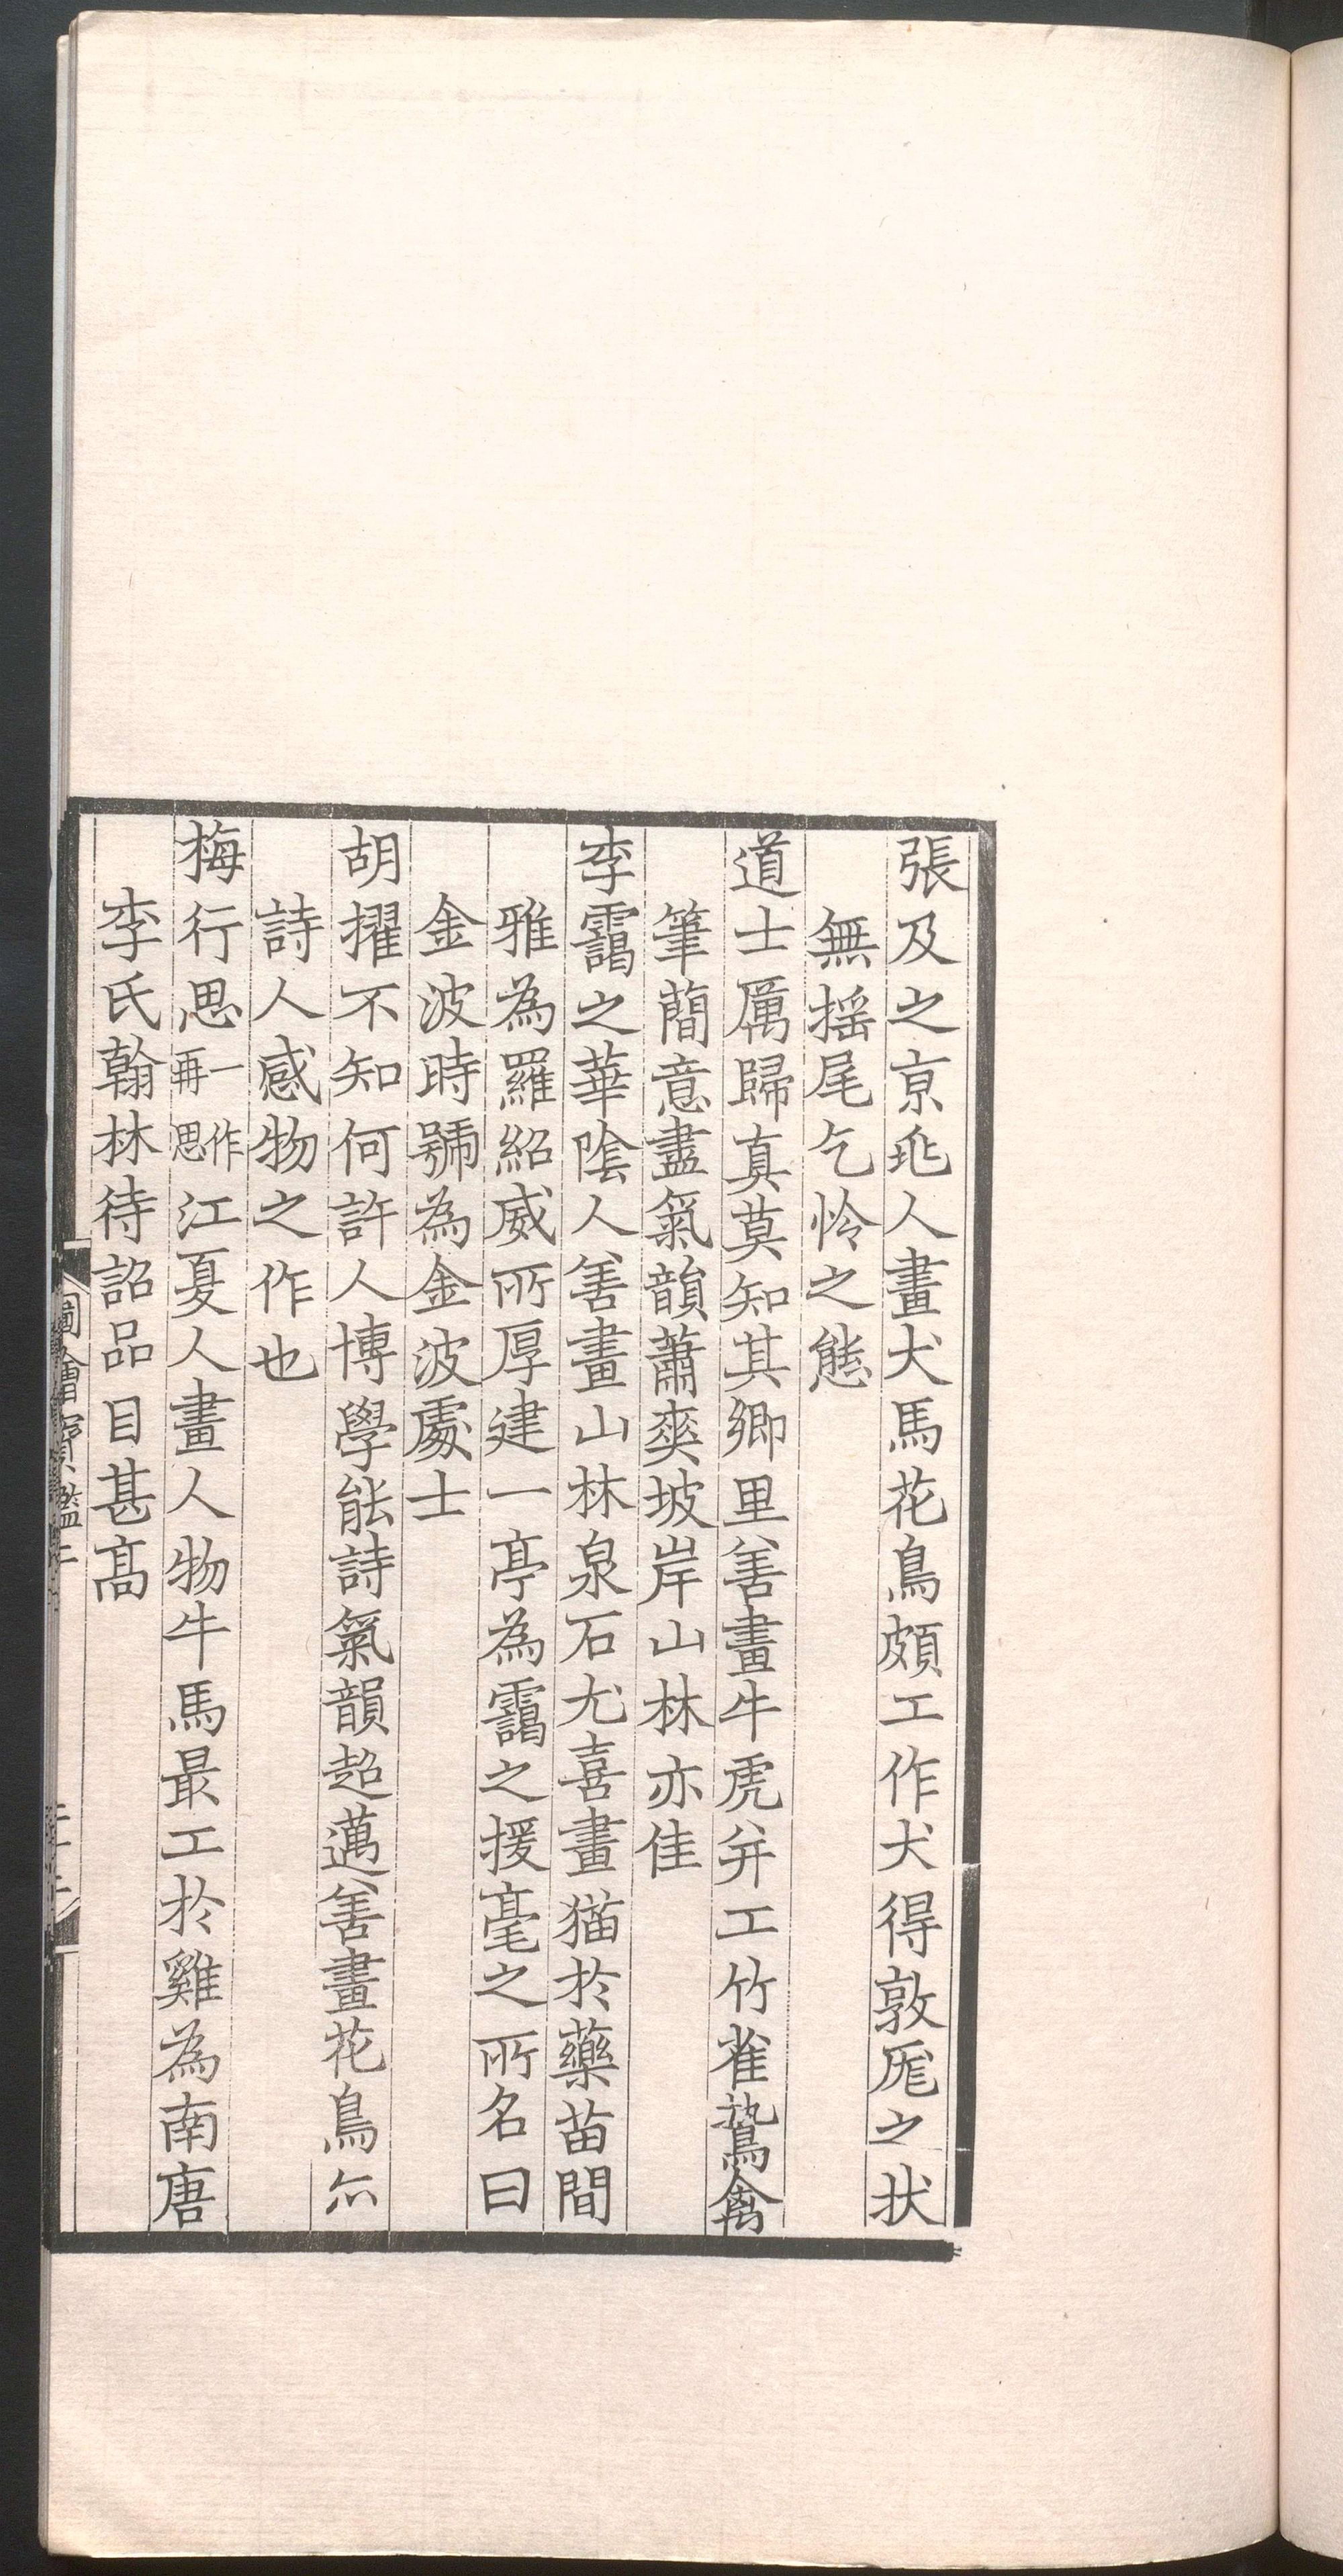 張及之京兆人畫犬馬花鳥頗工作犬得敦厖之狀
無揺尾乞怜之態
道士厲歸真莫知其鄉里善畫牛虎并工竹雀鷙禽
筆簡意盡氣韻蕭爽坡岸山林亦佳
李靄之華陰人善畫山林泉石尤喜畫猫於藥苗間
雅為羅紹威所厚建一亭為靄之援毫之所名曰
金波時號為金波處士
胡擢不知何許人博學能詩氣韻超邁善畫花鳥尒
詩人感物之作也
梅行思一作再思江夏人畫人物牛馬最工於雞為南唐
李氏翰林待詔品目甚髙
圖繪寶鑑二